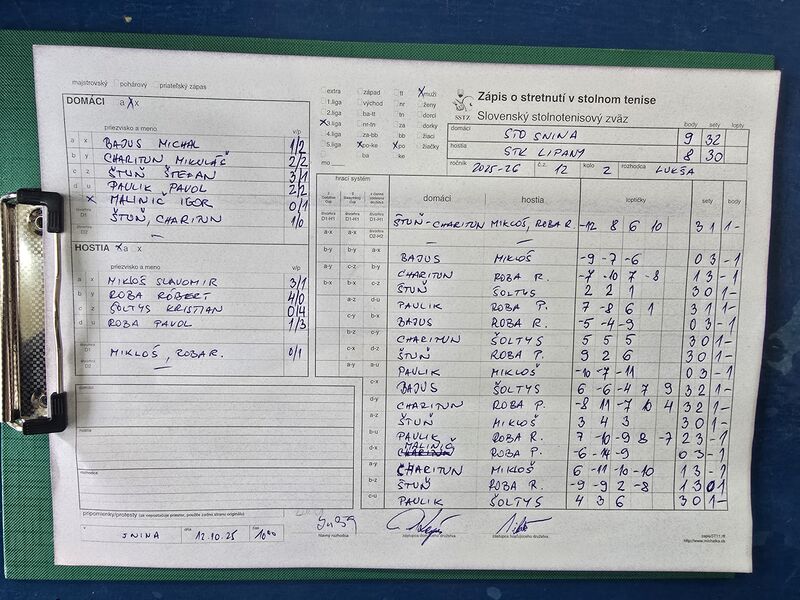 majstrovský pohárový priateľský zápas
DOMÁCI a x x
priezvisko a meno v/p
a x BAJUS MICHAL 1/2
b y CHARITUN MIKULÁŠ 2/2
c z ŠTUŇ ŠTEFAN 3/1
d u PAULIK PAVOL 2/2
x MALINIČ IGOR 0/1
štvorhra D1 ŠTUŇ, CHARITUN 1/0
štvorhra D2 –
HOSTIA x a x
priezvisko a meno v/p
a x MIKLOŠ SLAVOMIR 3/1
b y ROBA RÓBERT 4/0
c z ŠOLTYS KRISTIAN 0/4
d u ROBA PAVOL 1/3
štvorhra D1 MIKLOŠ, ROBA R. 0/1
štvorhra D2 –
domáci
hostia
rozhodca
pripomienky/protesty (ak nepostačuje priestor, použite zadnú stranu originálu)
v SNINA dňa 12.10.25 čas 10⁰⁰
extra západ tt x muži
1.liga východ nr ženy
2.liga ba-tt tn dorci
x 3.liga nr-tn za dorky
4.liga za-bb bb žiaci
5.liga x po-ke x po žiačky
ba ke
mo
SSTZ
Zápis o stretnutí v stolnom tenise
Slovenský stolnotenisový zväz
body sety lopty
domáci ŠTO SNINA 9 32
hostia STK LIPANY 8 30
ročník 2025-26 č. 12 kolo 2 rozhodca LUKŠA
hrací systém domáci hostia loptičky sety body
D1-H1 D1-H1 D1-H1 ŠTUŇ-CHARITUN MIKLOŠ, ROBA R. -12 8 6 10 3 1 1 -
a-x D2-H2 – –
b-y a-x BAJUS MIKLOŠ -9 -7 -6 0 3 - 1
a-y c-z b-y CHARITUN ROBA R. -7 -10 7 -8 1 3 - 1
b-x c-z ŠTUŇ ŠOLTYS 2 2 1 3 0 1 -
a-z d-u PAULIK ROBA P. 7 -8 6 1 3 1 1 -
c-y b-x a-y BAJUS ROBA R. -5 -4 -9 0 3 - 1
b-z CHARITUN ŠOLTYS 5 5 5 3 0 1 -
c-x ŠTUŇ ROBA P. 9 2 6 3 0 1 -
PAULIK MIKLOŠ -10 -7 -11 0 3 - 1
BAJUS ŠOLTYS 6 -6 -4 7 9 3 2 1 -
CHARITUN ROBA P. -8 11 -7 10 4 3 2 1 -
ŠTUŇ MIKLOŠ 3 4 3 3 0 1 -
PAULIK ROBA R. 7 -10 -9 8 -7 2 3 - 1
MALINIČ ROBA P. -6 -14 -9 0 3 - 1
CHARITUN MIKLOŠ 6 -11 -10 -10 1 3 - 1
ŠTUŇ ROBA R. -9 -9 2 -8 1 3 0 1
PAULIK ŠOLTYS 4 3 6 3 0 1 -
hlavný rozhodca zástupca domáceho družstva zástupca hosťujúceho družstva
http://www.michalka.sk